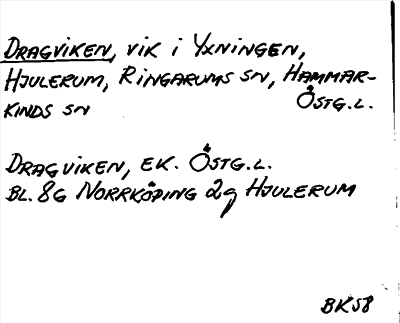 DRAGVIKEN, VIK I YXNINGEN,
HJULERUM, RINGARUMS SN, HAMMAR-
KINDS SN ÖSTG.L.
DRAGVIKEN, EK. ÖSTG.L.
BL. 8G NORRKÖPING 2g HJULERUM
BK58